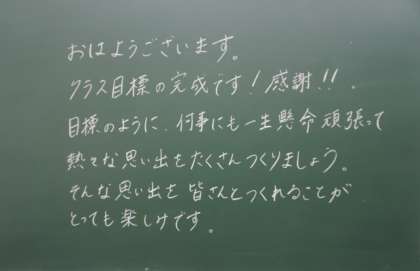 おはようございます。
クラス目標の完成です！感謝！！
目標のように、何事にも一生懸命頑張って
熱々な思い出をたくさんつくりましょう。
そんな思い出を皆さんとつくれることが
とっても楽しみです。